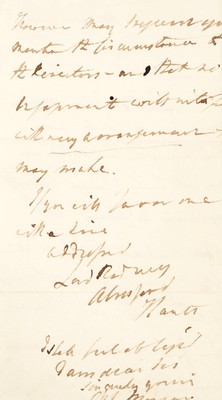 However may request you
mention the circumstance to
the Directors - and that no
with
any arrangement
may make.
If you will favor me
with a line
addressed
Lord Rodney
Alresford
Hants
I shall feel obliged
I am dear Sir
Sincerely yours